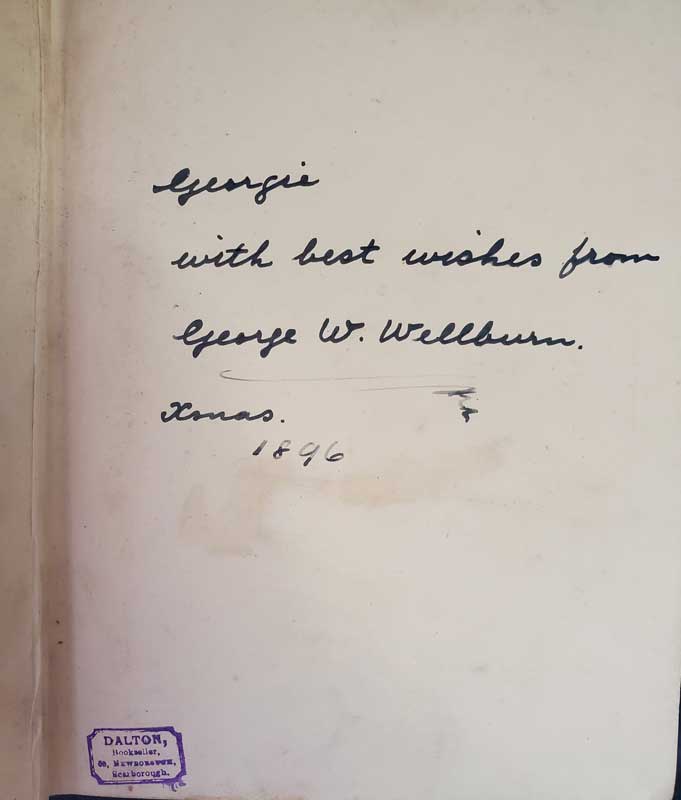 Georgie
with best wishes from
George W. Wellburn.
Xmas.
1896
DALTON,
Bookseller,
Scarborough.